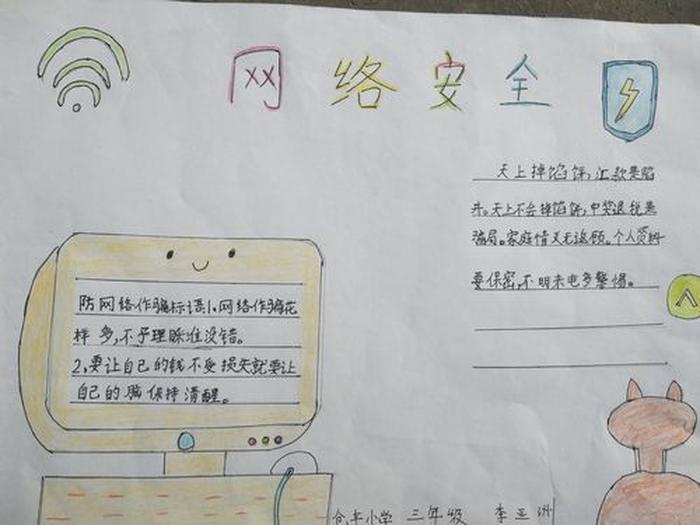 网络安全
天上掉馅饼,汇款是陷
井。天上不会掉馅饼,中奖退税是
骗局。家庭情义无返顾。个人资料
要保密,不明来电多警惕。
防网络作骗标语1、网络作骗花
样多,不予理睬准没错。
2,要让自己的钱不受损失就要让
自己的脑保持清醒。
仓丰小学 三年级 李亚洲